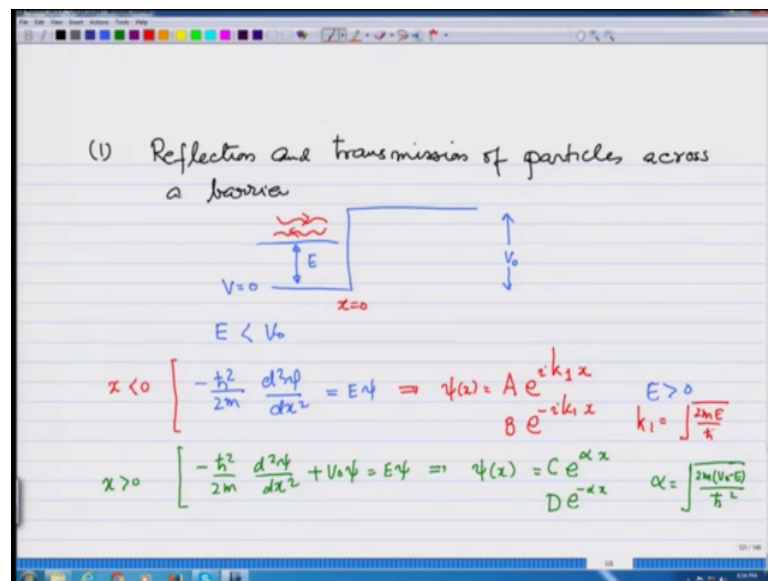 File Edit View Insert Actions Tools Help
(1) Reflection and transmission of particles across
a barrier
E
V=0
V₀
x=0
E < V₀
x<0 [ -ħ²/2m d²ψ/dx² = Eψ ⇒ ψ(x) = A e^{ik₁x} E>0
B e^{-ik₁x} k₁ = √(2mE/ħ)
x>0 [ -ħ²/2m d²ψ/dx² + V₀ψ = Eψ ⇒ ψ(x) = C e^{αx} α = √(2m(V₀-E)/ħ²)
D e^{-αx}